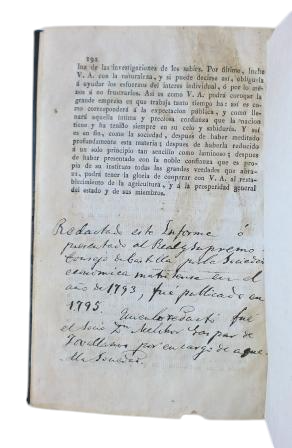 192
luz de las investigaciones de los sabios. Por último, luche
V. A. con la naturaleza, y si puede decirse así, obliguela
á ayudar los esfuerzos del interes individual, ó por lo me-
nos á no frustrarlos. Así es como V. A. podrá coronar la
grande empresa en que trabaja tanto tiempo ha: así es co-
mo corresponderá á la expectacion pública, y como lle-
nará aquella íntima y preciosa confianza que la nacion
tiene y ha tenido siempre en su celo y sabiduría. Y así
es en fin, como la sociedad, despues de haber meditado
profundamente esta materia; despues de haberla reducido
á un solo principio tan sencillo como luminoso; despues
de haber presentado con la noble confianza que es pro-
pia de su instituto todas las grandes verdades que abra-
za, podrá tener la gloria de cooperar con V. A. al resta-
blecimiento de la agricultura, y á la prosperidad general
del estado y de sus miembros.
Redactado este Informe ó
presentado al Real y Supremo
Consejo de Castilla por la Sociedad
económica matritense en el
año de 1793, fué publicado en
1795. redactó fué
el Socio Dn. Melchor Gaspar de
Jovellanos por encargo de aque-
lla Sociedad.